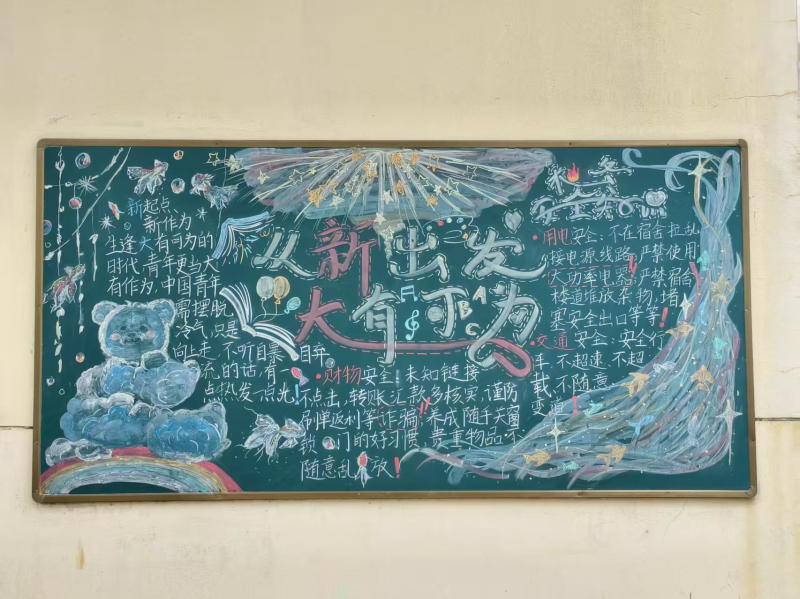 新起点
新作为
生逢大有可为的
时代青年更当大
有作为,中国青年
需摆脱
冷气,只是
向上走,不听自暴自弃
者流的话,有一
点热发一点光!
从新出发
大有可为
A
B
C
安全知识
·用电安全:不在宿舍拉乱
接电源线路,严禁使用
大功率电器!严禁宿舍
楼道堆放杂物,堵
塞安全出口等等!
·交通安全:安全行
车,不超速,不超
载,不随意
变道!
·财物安全:未知链接
不点击,转账汇款多核实,谨防
刷单返利等诈骗!!养成随手关窗
锁门的好习惯,贵重物品不
随意乱放!